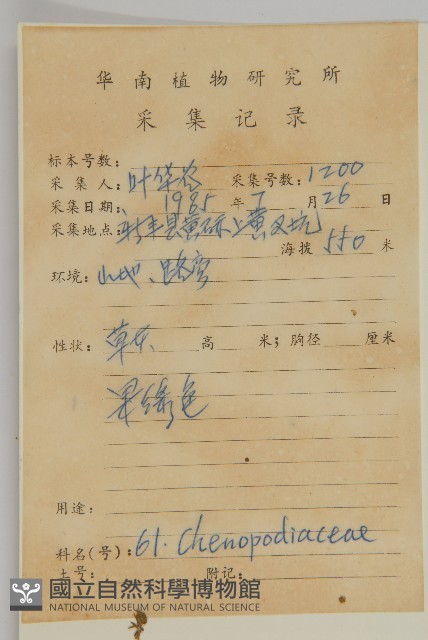 华南植物研究所
采集记录
标本号数:
采集人: 叶华谷 采集号数: 1200
采集日期: 1985 年 7 月 26 日
采集地点: 新丰县黄磜上黄叉坑
海拨 550 米
环境: 山地、路旁
性状: 草本 高 米; 胸径 厘米
果绿色
用途:
科名(号): 61. Chenopodiaceae
土号: 附记:
國立自然科學博物館
NATIONAL MUSEUM OF NATURAL SCIENCE